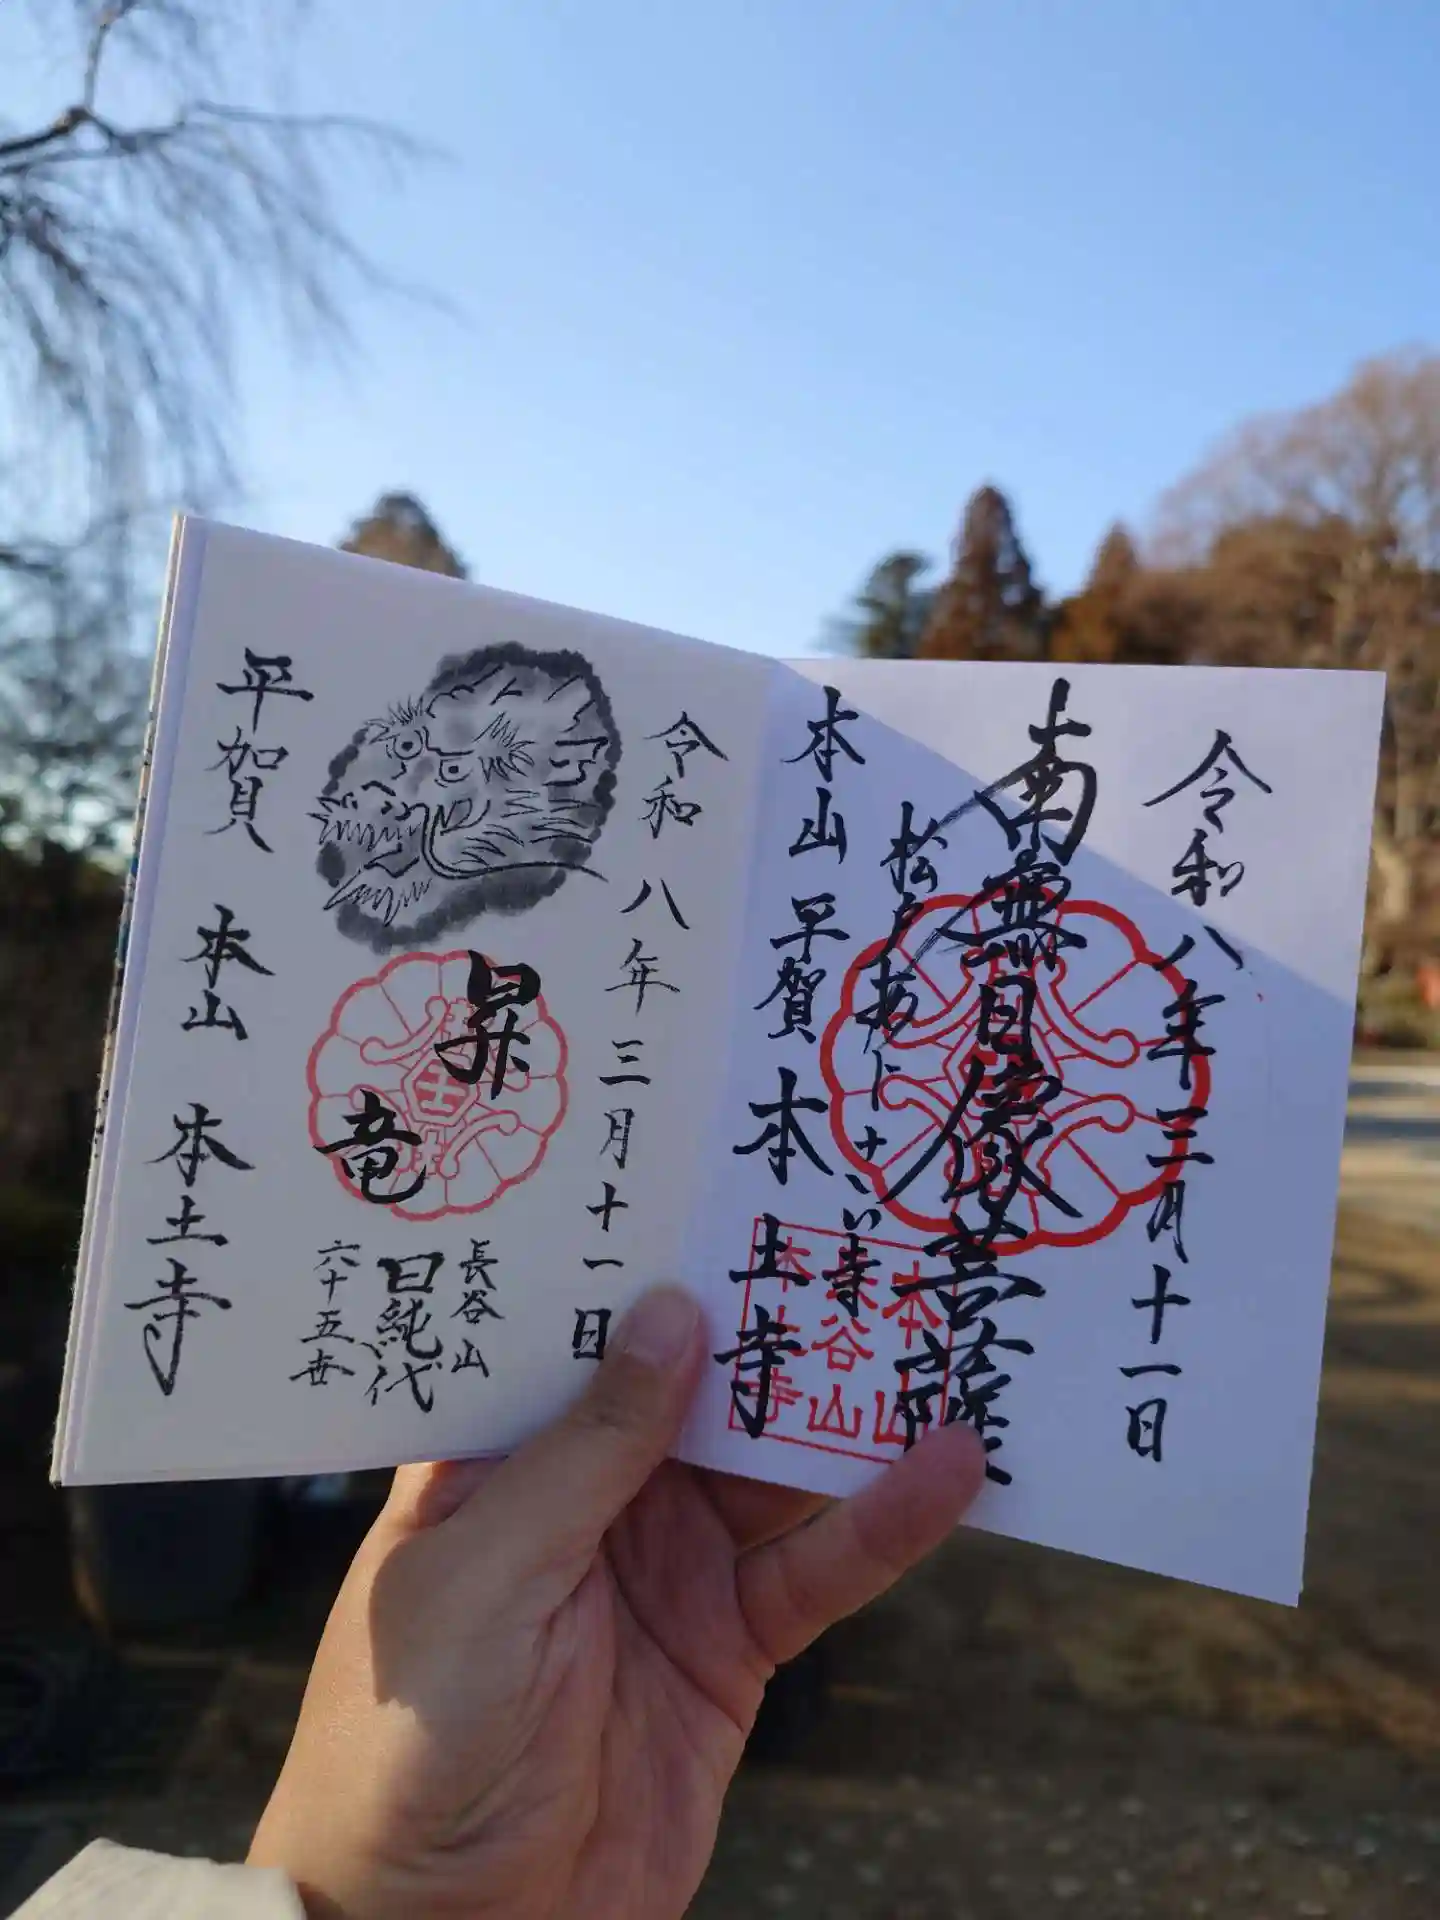 令和八年三月十一日
南無日像菩薩
松戸あじさい寺
本山 平賀 本土寺
本山
長谷山
本土寺
令和八年三月十一日
昇竜
長谷山
日純代
六十五世
平賀 本山 本土寺